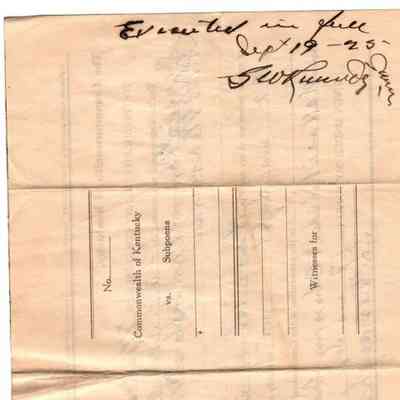 Executed in full
Sept 19-25
SW Kennedy
No.
Commonwealth of Kentucky
vs. Subpoena
Witnesses for